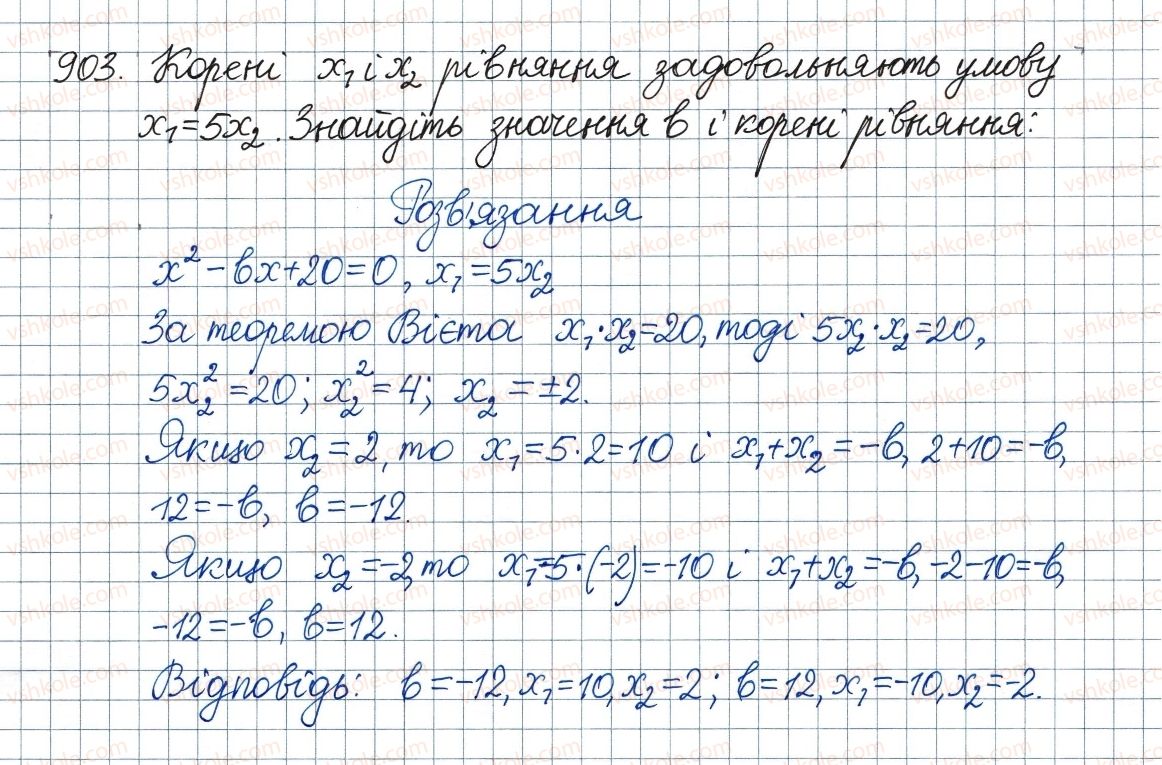 903. Корені x₁ і x₂ рівняння задовольняють умову
x₁=5x₂. Знайдіть значення в і корені рівняння:
Розв'язання
x²-вx+20=0, x₁=5x₂
За теоремою Вієта x₁·x₂=20, тоді 5x₂·x₂=20,
5x₂²=20; x₂²=4; x₂=±2.
Якщо x₂=2, то x₁=5·2=10 і x₁+x₂=-в, 2+10=-в,
12=-в, в=-12.
Якщо x₂=-2, то x₁=5·(-2)=-10 і x₁+x₂=-в, -2-10=-в,
-12=-в, в=12.
Відповідь: в=-12, x₁=10, x₂=2; в=12, x₁=-10, x₂=-2.